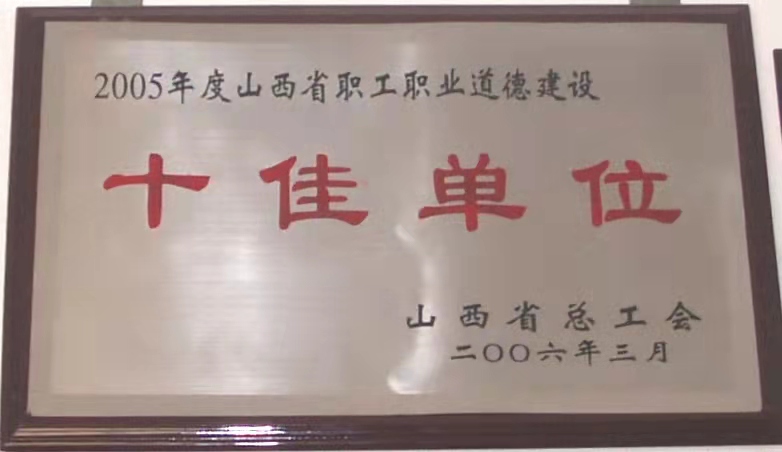 2005年度山西省职工职业道德建设
十佳单位
山西省总工会
二〇〇六年三月